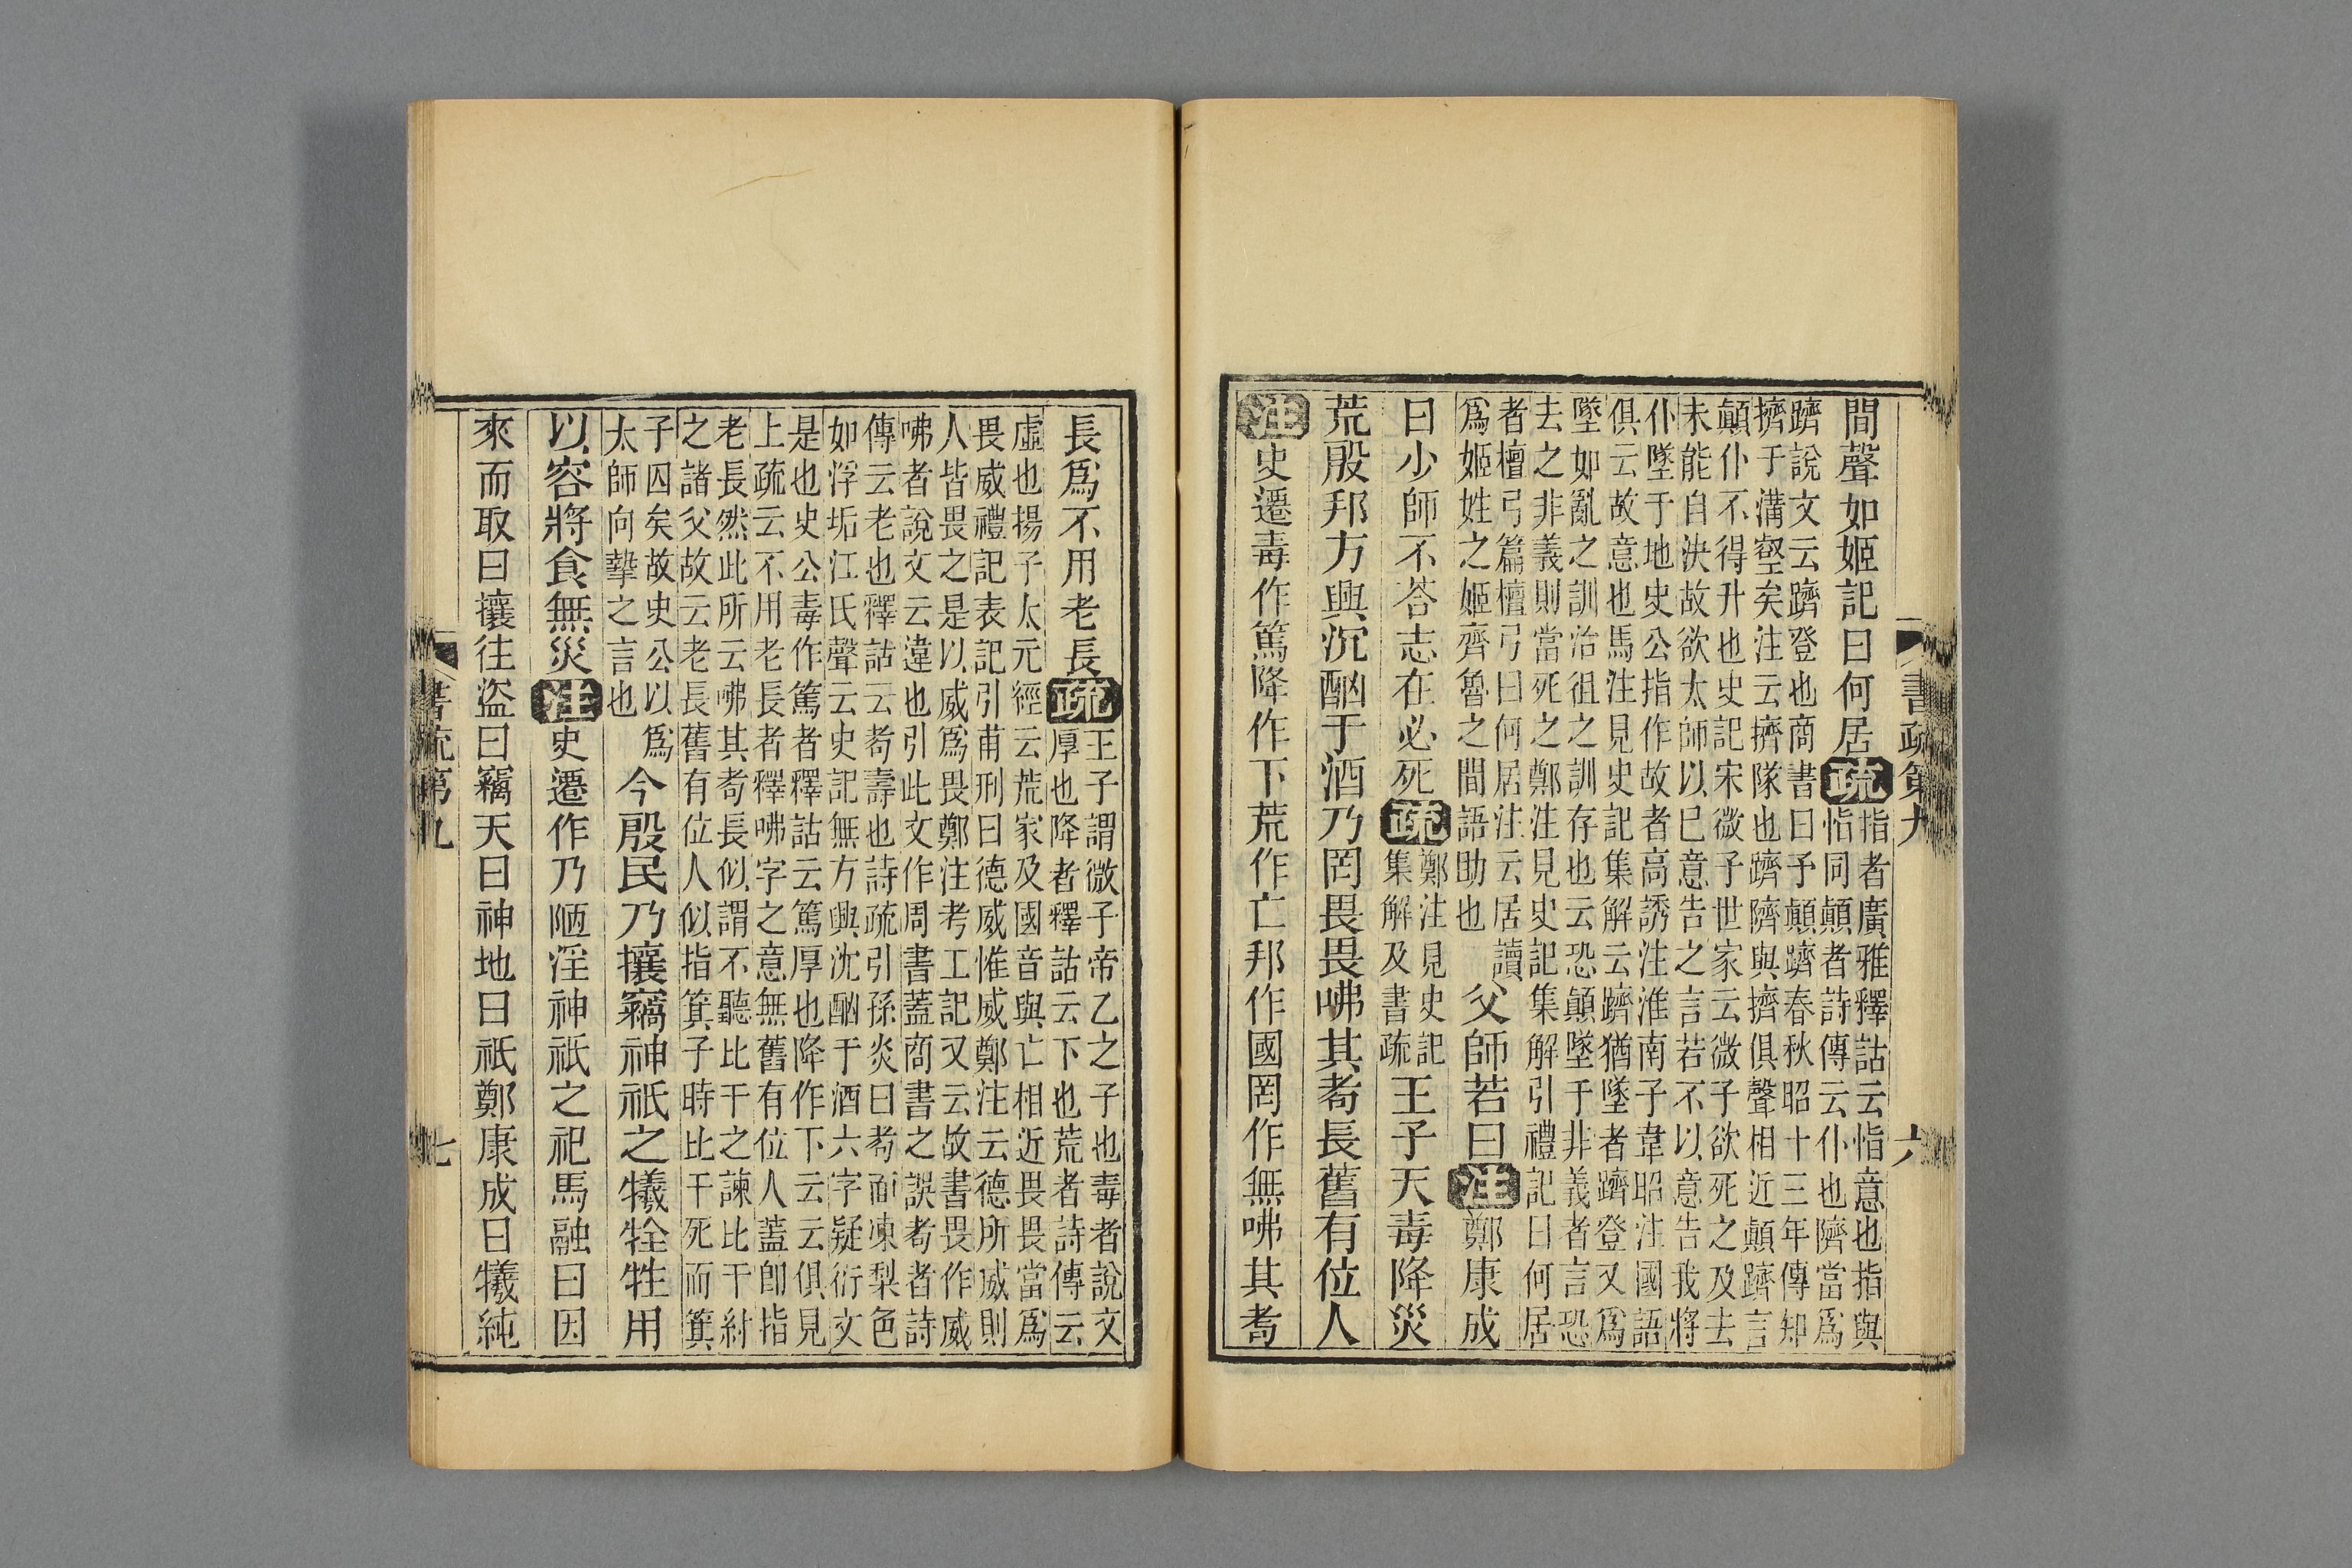 書疏第九　六
間聲如姬記曰何居疏
指者廣雅釋詁云恉意也指與
恉同顛者詩傳云仆也隮當爲
躋說文云躋登也商書曰予顛躋春秋昭十三年傳知
擠于溝壑矣注云擠隊也躋隮與擠俱聲相近顛躋言
顛仆不得升也史記宋微子世家云微子欲死之及去
未能自決故欲太師以巳意告之言若不以意告我將
仆墜于地史公指作故者高誘注淮南子韋昭注國語
俱云故意也馬注見史記集解云躋猶墜者躋登又爲
墜如亂之訓治徂之訓存也云恐顛墜于非義者言恐
去之非義則當死之鄭注見史記集解引禮記曰何居
者檀弓篇檀弓曰何居注云居讀
爲姬姓之姬齊魯之間語助也
父師若曰注鄭康成
曰少師不荅志在必死疏
鄭注見史記
集解及書疏
王子天毒降災
荒殷邦方興沉酗于酒乃罔畏畏咈其耇長舊有位人
注史遷毒作篤降作下荒作亡邦作國罔作無咈其耇
長爲不用老長疏
王子謂微子帝乙之子也毒者說文
厚也降者釋詁云下也荒者詩傳云
虛也揚子太元經云荒家及國音與亡相近畏畏當爲
畏威禮記表記引甫刑曰德威惟威鄭注云德所威則
人皆畏之是以威爲畏鄭注考工記又云故書畏作威
咈者說文云違也引此文作周書蓋商書之誤耇者詩
傳云老也釋詁云耇壽也詩疏引孫炎曰耇面凍梨色
如浮垢江氏聲云史記無方興沈酗于酒六字疑衍文
是也史公毒作篤者釋詁云篤厚也降作下云云俱見
上疏云不用老長者釋咈字之意無舊有位人蓋卽指
老長然此所云咈其耇長似謂不聽比干之諫比干紂
之諸父故云老長舊有位人似指箕子時比干死而箕
子囚矣故史公以爲
太師向摯之言也
今殷民乃攘竊神祇之犧牷牲用
以容將食無災注史遷作乃陋淫神祇之祀馬融曰因
來而取曰攘往盜曰竊天曰神地曰祇鄭康成曰犧純
書疏第九　七